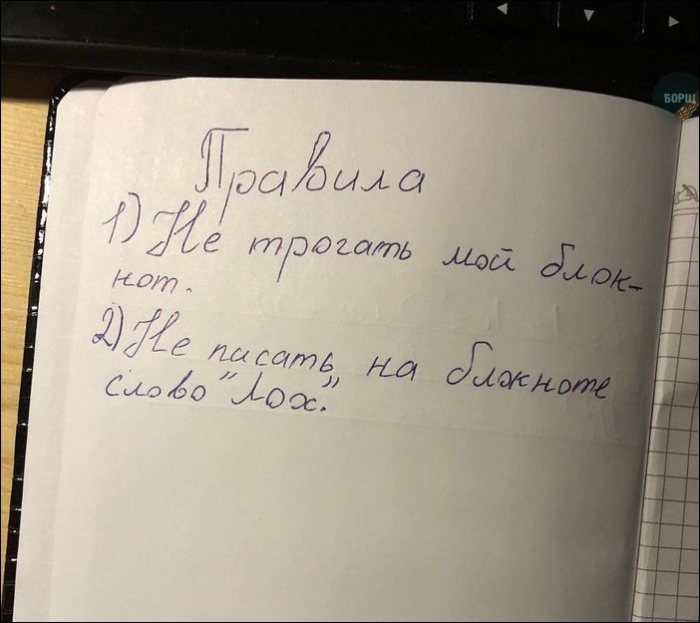 БОРЩ
Правила
1) Не трогать мой блок-
нот.
2) Не писать на блокноте
слово "Лох".